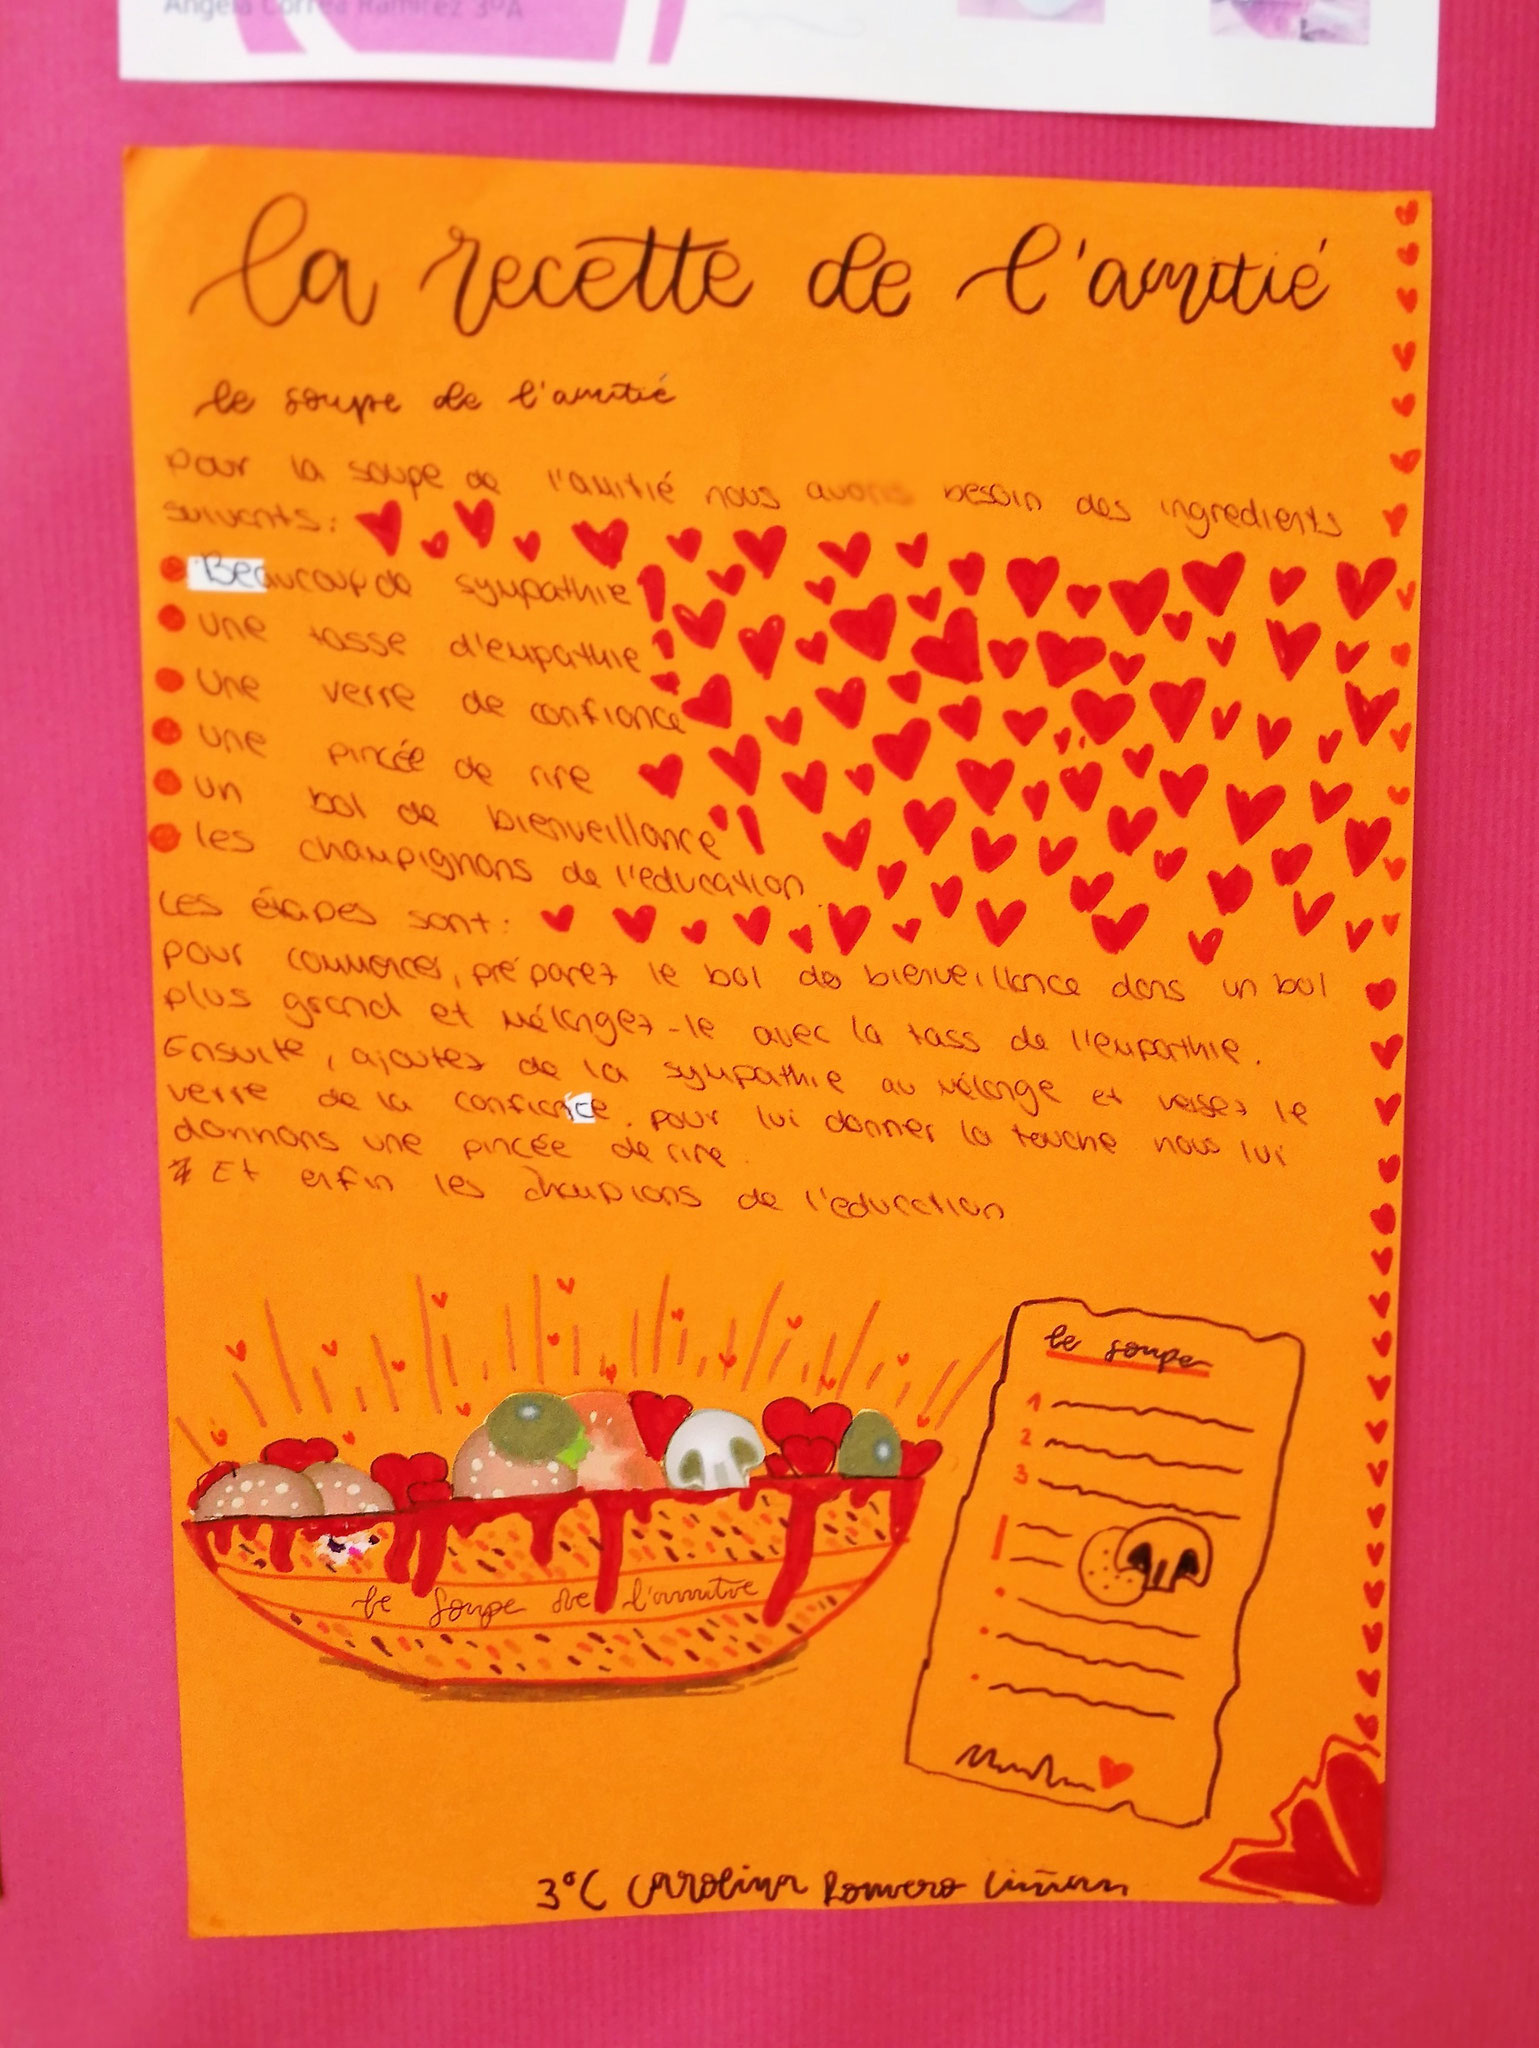 Angela Correa Ramirez 3ºA
la recette de l'amitié
le soupe de l'amitié
pour la soupe de l'amitié nous avons besoin des ingredients
suivants:
Beaucoup de sympathie
une tasse d'empathie
une verre de confiance
une pincée de rire
un bol de bienveillance
les champignons de l'education
Les étapes sont:
pour commencer, préparez le bol de bienveillance dans un bol
plus grand et mélangez-le avec la tass de l'empathie.
Ensuite, ajoutez de la sympathie au mélange et versez le
verre de la confiance. pour lui donner la touche nous lui
donnons une pincée de rire.
Et enfin les champions de l'education
le soupe
1
2
3
le soupe de l'amitié
3ºC Carolina Romero Liñan